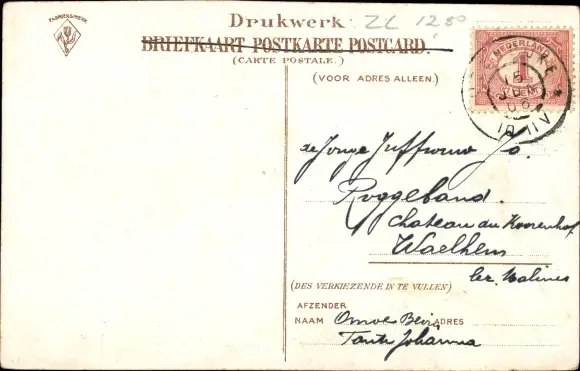 FABRIEKSMERK
Drukwerk ZL 12 50
BRIEFKAART POSTKARTE POSTCARD.
(CARTE POSTALE.)
(VOOR ADRES ALLEEN.)
NEDERLAND
1
15
JUN
06
10-11V
de Jonge Juffrouw
Roggeband.
Chateau du
Waelhem
Malines
(DES VERKIEZENDE IN TE VULLEN)
AFZENDER
NAAM ADRES
Tante Johanna